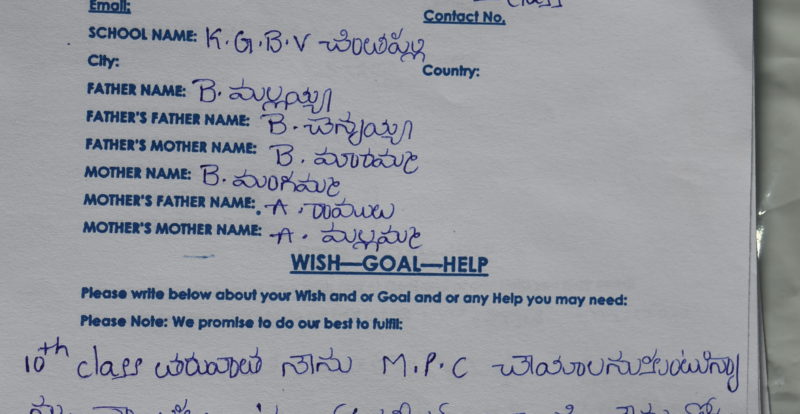 Email:
class
Contact No.
SCHOOL NAME: K.G.B.V
City:
Country:
FATHER NAME: B. మల్లయ్య
FATHER'S FATHER NAME: B. చెన్నయ్య
FATHER'S MOTHER NAME: B. మారమ్మ
MOTHER NAME: B. మంగమ్మ
MOTHER'S FATHER NAME: A. రాములు
MOTHER'S MOTHER NAME: A. మల్లమ్మ
WISH—GOAL—HELP
Please write below about your Wish and or Goal and or any Help you may need:
Please Note: We promise to do our best to fulfil:
10th class తరువాత నాను M.P.C చేయాలనుకుంటున్నా